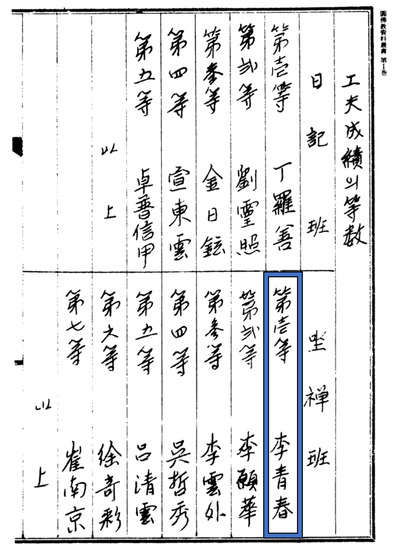 圓佛敎資料叢書 第1卷
工夫成績의等数
日記班
第壹等 丁羅善
第貳等 劉靈照
第參等 金日鉉
第四等 宣東雲
第五等 卓普信甲
以上
坐禅班
第壹等 李青春
第貳等 李願華
第參等 李雲外
第四等 吳哲秀
第五等 呂清雲
第六等 徐奇彩
第七等 崔南京
以上